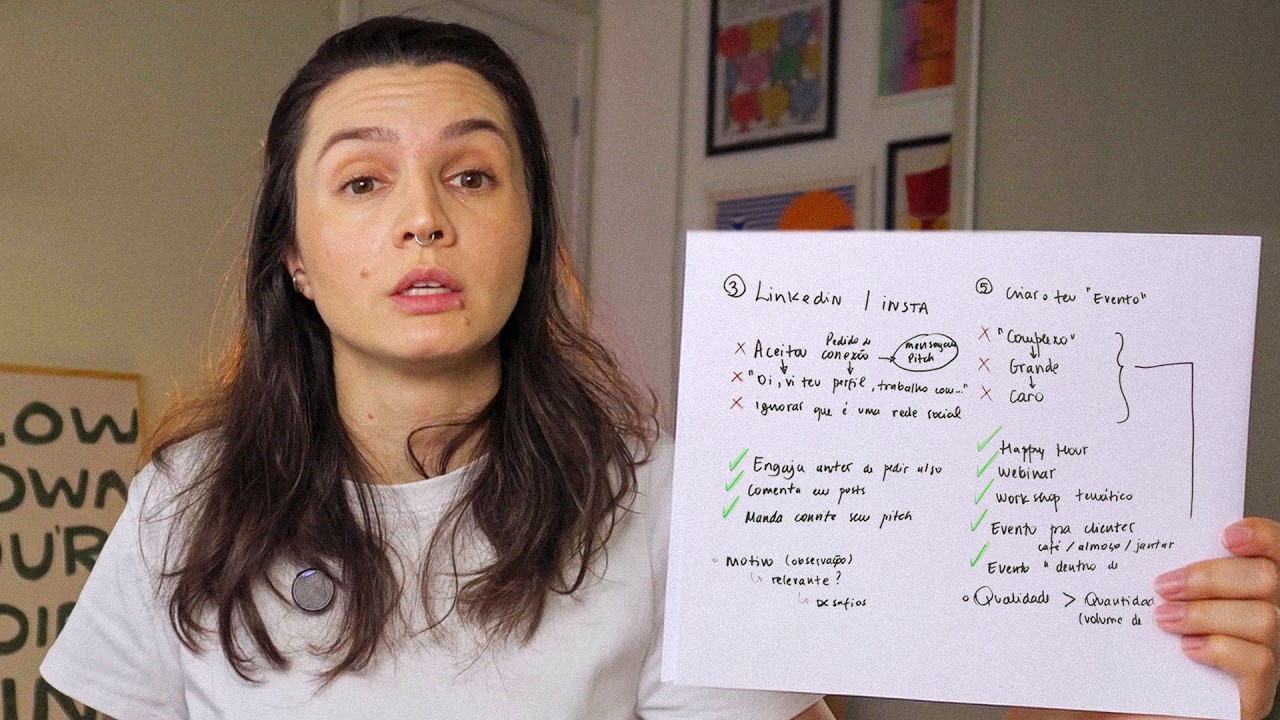 LOW
OWN
OU'R
③ Linkedin / INSTA
X Aceitou Pedido de conexão → mensagem Pitch
X "Oi, vi teu perfil, trabalho com..."
X Ignorar que é uma rede social
✓ Engaja antes de pedir algo
✓ Comenta em posts
✓ Manda convite sem pitch
○ Motivo (observação)
↳ relevante?
↳ Desafios
⑤ Criar o teu "Evento"
X "Complexo"
X Grande
X Caro
✓ Happy Hour
✓ Webinar
✓ Workshop temático
✓ Evento pra clientes
café / almoço / jantar
✓ Evento "dentro de
○ Qualidade > Quantidad
(volume de